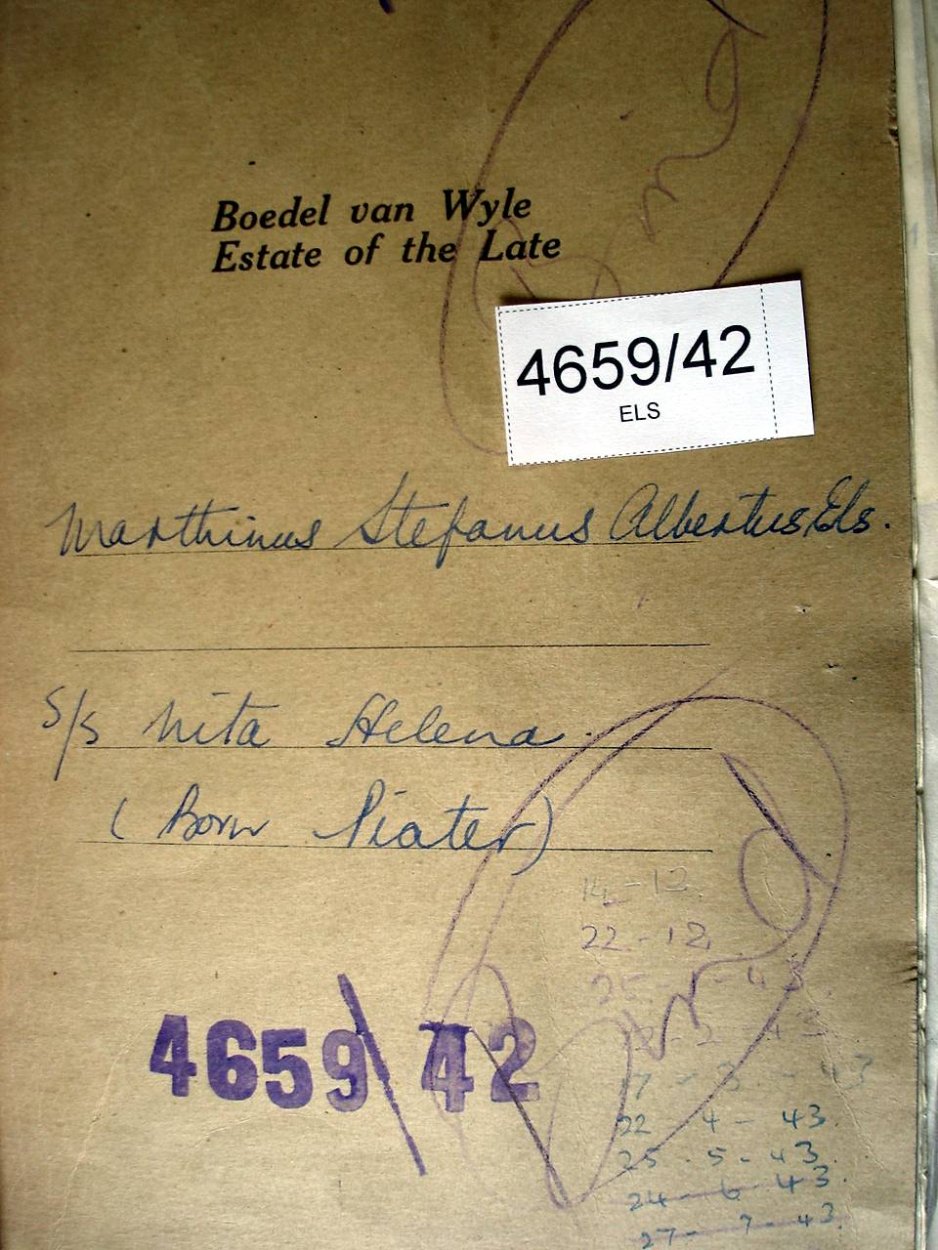 Boedel van Wyle
Estate of the Late
4659/42
ELS
Marthinus Stefanus Albertus Els.
S/s Nita Helena.
(Born Piater)
14-12
22-12
25-1-43.
22-4-43.
25-5-43.
24-6-43.
27-7-43.
4659/42